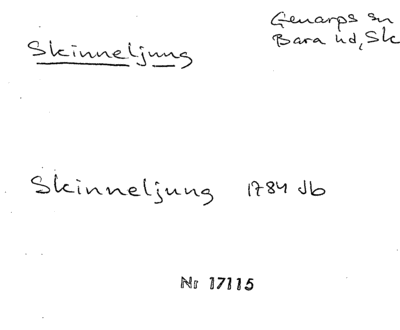 Skinneljung
Genarps sn
Bara hd, Sk
Skinneljung 1784 Jb
Nr 17115